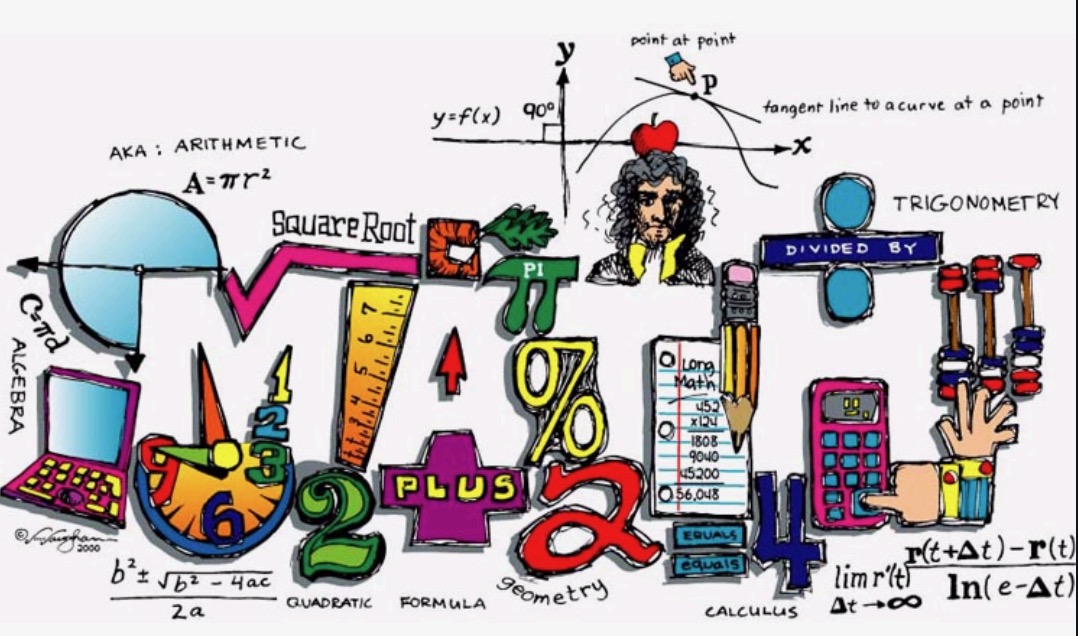 point at point
y
P
y=f(x)
90°
tangent line to a curve at a point
x
AKA : ARITHMETIC
A=πr²
Square Root
PI
TRIGONOMETRY
DIVIDED BY
C=πd
ALGEBRA
7
6
5
4
3
%
Long
Math
452
x124
1808
9040
45200
56,048
1
2
3
6
9
2
PLUS
2
EQUALS
equals
4
© 2000
b² ± √b² - 4ac
2a
QUADRATIC FORMULA
geometry
CALCULUS
lim r'(t) r(t+Δt) - r(t)
Δt → ∞ ln( e-Δt)